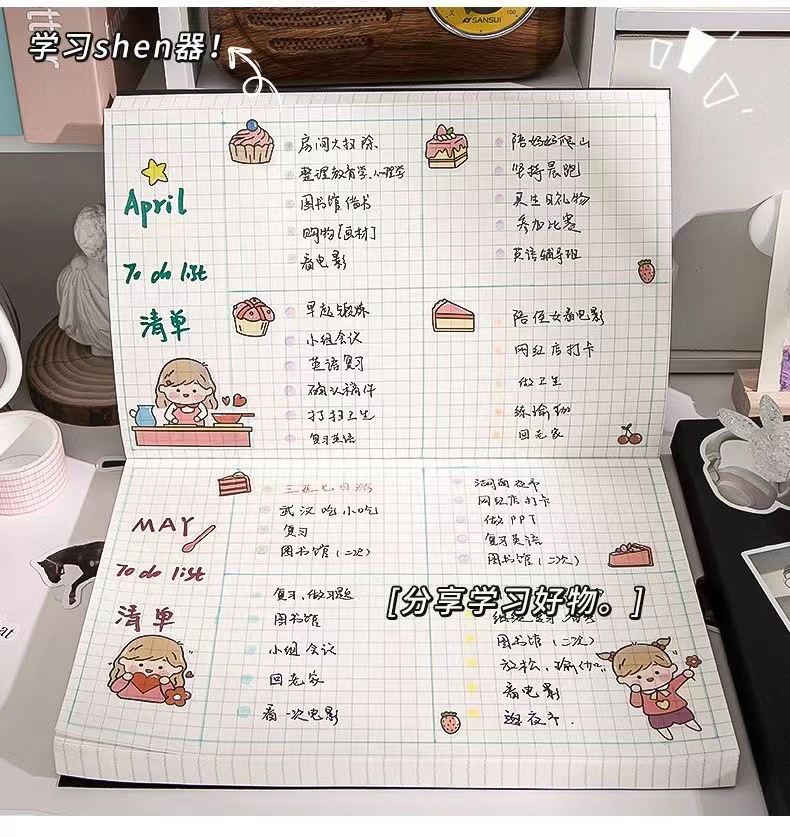 学习shen器！
SANSUI
April
To do list
清单
房间大扫除
整理教育学、心理学
图书馆借书
购物[画材]
看电影
陪妈妈爬山
坚持晨跑
买生日礼物
参加比赛
英语辅导班
早起锻炼
小组会议
英语复习
确认稿件
打扫卫生
复习英语
陪侄女看电影
网红店打卡
做卫生
练瑜伽
回老家
MAY
To do list
清单
武汉吃小吃
复习
图书馆（二次）
网红店打卡
做PPT
复习英语
图书馆（二次）
复习、做习题
图书馆
小组会议
回老家
看一次电影
[分享学习好物。]
图书馆（二次）
放松、瑜伽
看电影
逛夜市.